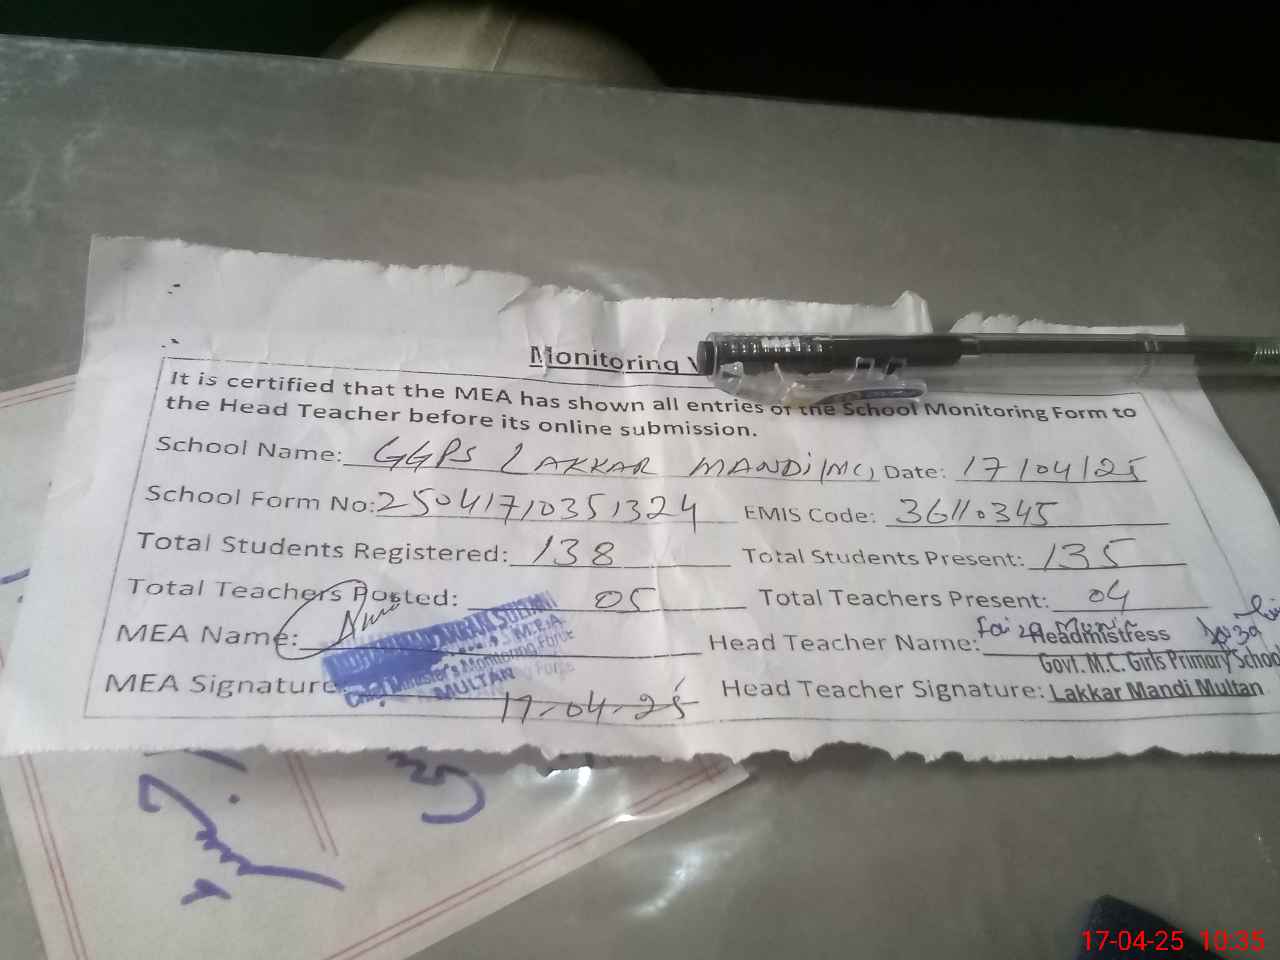 Monitoring
It is certified that the MEA has shown all entries of the School Monitoring Form to
the Head Teacher before its online submission.
School Name: GGPS LAKKAR MANDI (MC) Date: 17/04/25
School Form No: 25041710351324 EMIS Code: 36110345
Total Students Registered: 138 Total Students Present: 135
Total Teachers Posted: 05 Total Teachers Present: 04
MEA Name: SULTAN Head Teacher Name: Faiza Munir Headmistress
M.E.A
Chief Minister's Monitoring Force Govt. M.C. Girls Primary School
MEA Signature: MULTAN Head Teacher Signature: Lakkar Mandi Multan
17-04-25
17-04-25 10:35